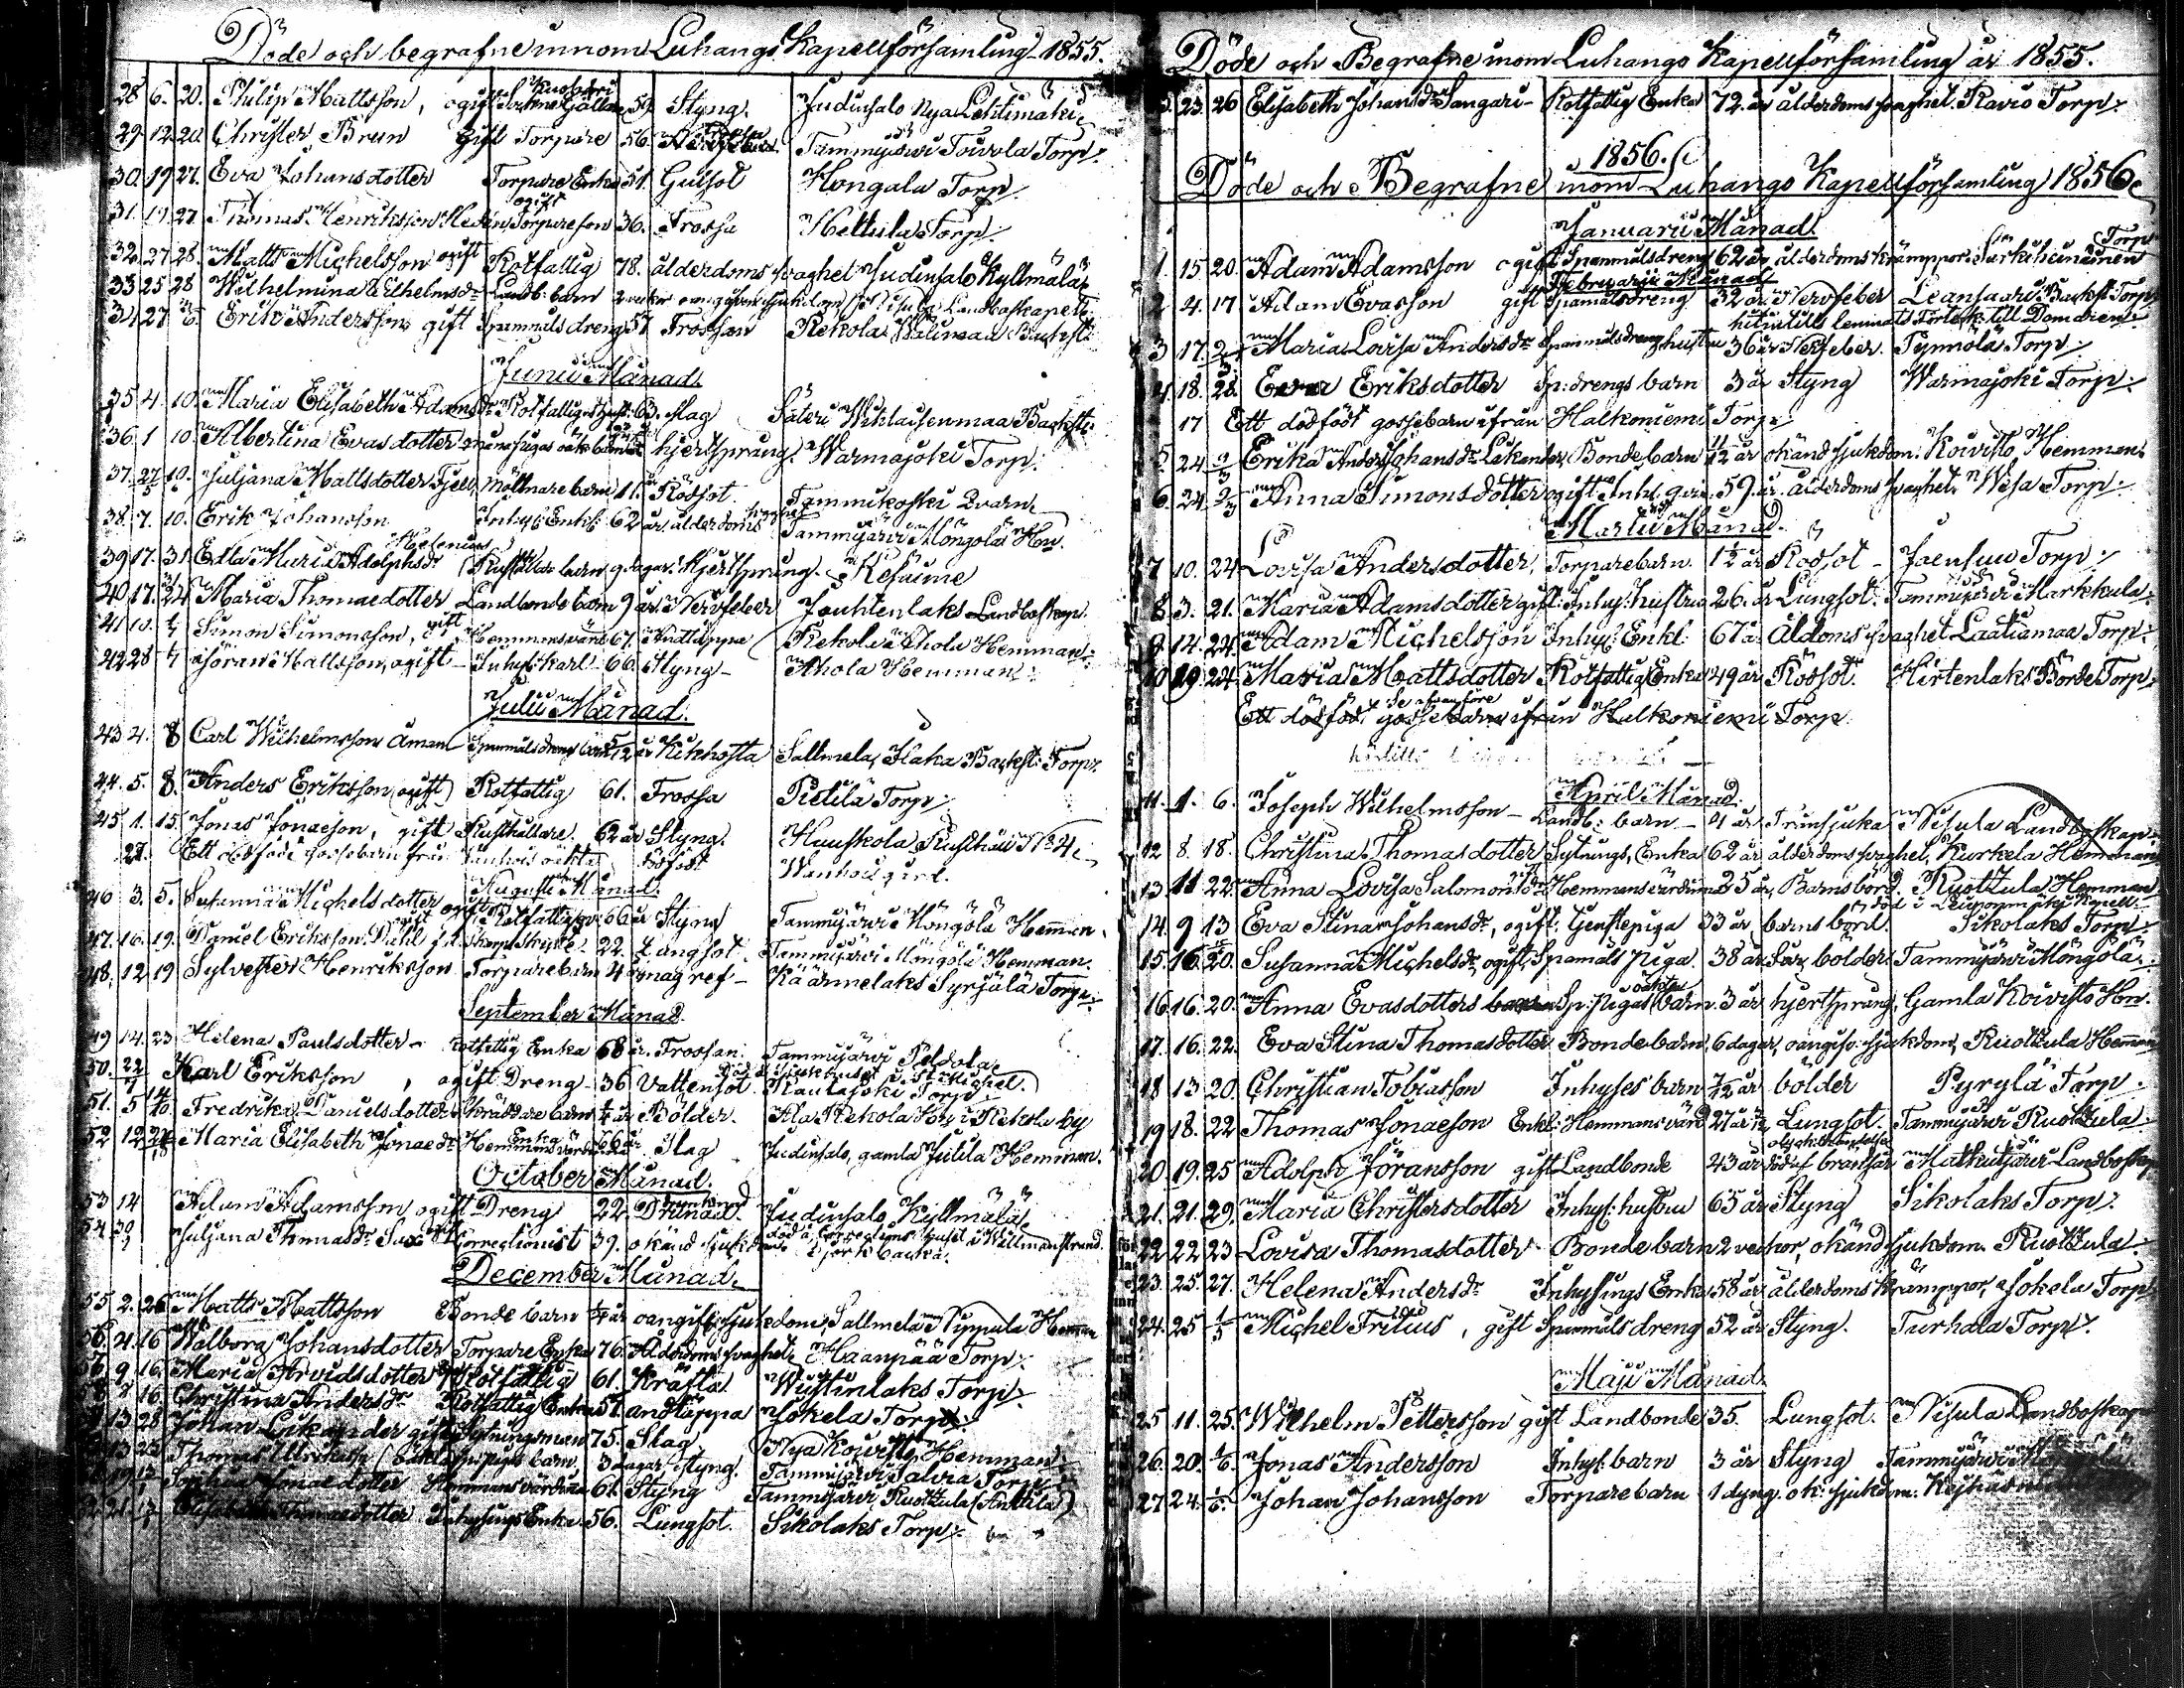 Döde och begrafne innom Luhangs Kapellförsamling 1855.
28 6. 20. Philip Mattsson, ogift 59. Styng. Judinsalo Nya Lehtimäki
29 12. 20. Christer Brun Gift Torpare 56. Tammijärwi Toiwola Torp.
30. 19 27. Eva Johansdotter Torpare Enka 51. Gulsot Hongala Torp
31. 19. 27. Thomas Henriksson Torpareson 36. Frossa Hettula Torp.
32. 27 28. Matts Michelsson ogift Rotfattig 78. ålderdoms svaghet Judinsalo Kyllmälä
33 25 28 Wilhelmina Wilhelmsdr Landb: barn
34 27 Eric Andersson gift Spanmåls dreng 57. Frossan Rekola Walimaa Backst:
Junii Månad.
35 4. 10. Maria Elisabeth Adamsdr Rotfattig 63. Slag Säteri Backst:
36 1 10. Albertina Evasdotter hjertsprång. Warmajoki Torp.
37. 27/5 10. Juljana Mattsdotter möllnare barn 11. Rödsot. Tammikoski Qvarn
38. 7. 10. Erik Johansson Inhys Enkl: 62 år ålderdoms svaghet Tammijärvi Möngölä Hem.
39 17. 31. Edla Maria Adolphsdr Helenius 9 dagar. Hjertsprång.
40 17. 24 Maria Thomaedotter Landbonde barn 9 år. Nervfeber Jauhtenlaks Landboskap.
41 10. Simon Simonsson, gift Hemmansvärd 67. Andtäppa Rekola Ahola Hemman.
42 28 Jöran Mattsson, ogift Inhys: karl 66. Styng Ahola Hemman.
Julii Månad.
43 4. 8 Carl Wilhelmsson Åman Spanmålsdreng barn 5/12 år Kikhosta Sallmela, Haka Backst: Torp.
44. 5. 8. Anders Eriksson (ogift) Rotfattig 61. Frossa Pietilä Torp.
45 1. 15 Jonas Jonaeson, gift Rusthållare. 62 år Styng. Huuskola Rusthåll № 4
22. Ett dödfödt gossebarn från
Augusti Månad.
46 3. 5. Susanna Michelsdotter ogift Rotfattig 66 år Styng Tammijärvi Möngölä Hemman.
47. 16. 19. Daniel Eriksson Dahl 22. Lungsot. Tammijärvi Möngölä Hemman.
48. 12 19 Sylvester Henriksson Torparebarn 4 magref Käärmelaks Syrjälä Torp.
September Månad.
49 14. 23 Helena Paulsdotter rotfattig Enka 68 år. Frossan. Tammijärvi Peldola
50. 22 Karl Eriksson, ogift Dreng 36 Vattensot. Rautajoki Torp
51. 5 Fredrika Danielsdotter Skräddare barn Bölder. Ala Rekola Hem i Rekola by
52 12 Maria Elisabeth Jonaedr Enka 66 år Slag Judinsalo, gamla Juttila Hemman.
October Månad.
53 14 Adam Adamsson ogift Dreng 22. Drunknad. Judinsalo Kyllmälä
54 30 Juljana Thomasdr Correctionist 39. okänd sjukdom död å Corrections huset i Willmanstrand.
December Månad.
55 2. 26 Matts Mattsson Bonde barn 1/4 år oangifv: sjukdom, Sallmela Nippula Hemman
56. 4. 16 Walborg Johansdotter Torpare Enka 76. Ålderdoms svaghet Haanpää Torp.
57 9 16. Maria Arvidsdotter Rotfattig 61. Kräfta Wustinlaks Torp.
58 16. Christina Andersdr Rotfattig Enka 57. andtäppa Jokela Torp.
13 28 Johan Lukander gift Sytningsman 75. Slag Nya Koivisto Hemman
Thomas Ulrikasson 3 dagar Styng. Tammijärvi Salvia Torp
Hemmansvärdinna 61. Styng Tammijärvi, Ruokkula (Anttila)
Thomaedotter Inhysings Enka. 56. Lungsot. Sikolaks Torp.
Döde och Begrafne inom Luhangs Kapellförsamling år 1855.
23. 26 Elisabeth Johansdr Sangari Rotfattig Enka 72. år ålderdoms svaghet. Ravio Torp.
1856.
Döde och Begrafne inom Luhangs Kapellförsamling 1856
Januarii Månad.
1. 15 20. Adam Adamsson ogift Spanmålsdreng 62 år ålderdomskrämppor. Torp
Februarii Månad
2 4. 17 Adam Evasson gift Spanmålsdreng 32 år Nervfeber Leansaari Backst: Torp
3 17. Maria Lovisa Andersdr Spanmålsdreng hustru 36 år Nervfeber. Tynnölä Torp.
4. 18. 28. Eva Eriksdotter Sp: drengs barn 3 år Styng Warmajoki Torp.
17 Ett dödfödt gossebarn ifrån Halkoniemi Torp.
5 24 2/3 Erika Johansdr Lukander, Bonde barn 11/12 år okänd sjukdom. Koivisto Hemman.
6. 24 2/3 Anna Simonsdotter ogift Inhys. qvin. 59. år. ålderdoms svaghet. Wesa Torp.
Martii Månad.
7 10. 24 Lovisa Andersdotter, Torparebarn. 1½ år Rödsot Joensuu Torp.
8 3. 21. Maria Adamsdotter gift. Inhys: hustru 26. år Lungsot. Tammijärvi Markkula.
9 14. 24. Adam Michelsson Inhys: Enkl: 67 år Åldoms svaghet Laatiamaa Torp.
10 19. 24. Maria Mattsdotter Rotfattig Enka 49 år Rödsot. Hirtenlaks Borde Torp
Ett dödfödt gossebarn ifrån Halkoniemi Torp.
Se ofvanföre
April Månad.
11. 1. 6. Joseph Wilhelmsson Landb: barn 4 år Trånsjuka Nisula Landboskap
12 8. 18. Christina Thomasdotter Sytnings, Enka 62 år ålderdoms svaghet, Kurkela Hemman
13. 11 22. Anna Lovisa Salomonsdr Hemmansvärdinna 25 år, Barnsbörd. Ruokkula Hemman
14. 9 13 Eva Stina Johansdr, ogift. Tjenstepiga 33 år barns börd. Sikolaks Torp
15. 16. 20. Susanna Michelsdr, ogift, Spanmåls piga. 38 år Sår, bölder. Tammijärvi Möngölä
16 16. 20. Anna Evasdotters Sp: pigas oäkta barn 3 år hjertsprång, Gamla Koivisto Hem.
17. 16. 22. Eva Stina Thomasdotter Bondebarn, 6 dagar, oangifv: sjukdom, Ruokkula Hemman
18 13 20. Christian Tobiasson Inhyses barn 7/12 år bölder Pyrylä Torp.
19 18. 22 Thomas Jonaeson Enkl: Hemmansvärd 27 år Lungsot. Tammijärvi Ruokkula
20. 19. 25 Adolph Jöransson gift Landbonde 43 år död af brännsår Matkutjärvi Landboskap
21. 21. 29. Maria Christersdotter Inhys: hustru 65 år Styng Sikolaks Torp.
22 22 23 Lovisa Thomasdotter Bonde barn 2 veckor, okänd sjukdom. Ruokkula.
23. 25. 27. Helena Andersdr Inhysings Enka 58 år ålderdoms krämppor, Jokela Torp
24. 25 1/5 Michel Fritius, gift Spanmålsdreng 52 år Styng. Turhala Torp.
Maji Månad.
25 11. 25. Wilhelm Pettersson gift Landbonde 35. Lungsot. Nisula Landboskap
26. 20. 1/6. Jonas Andersson Inhys: barn 3 år Styng Tammijärvi
27 24. 1/6. Johan Johansson Torparebarn 1 dygn. ok: sjukdom.